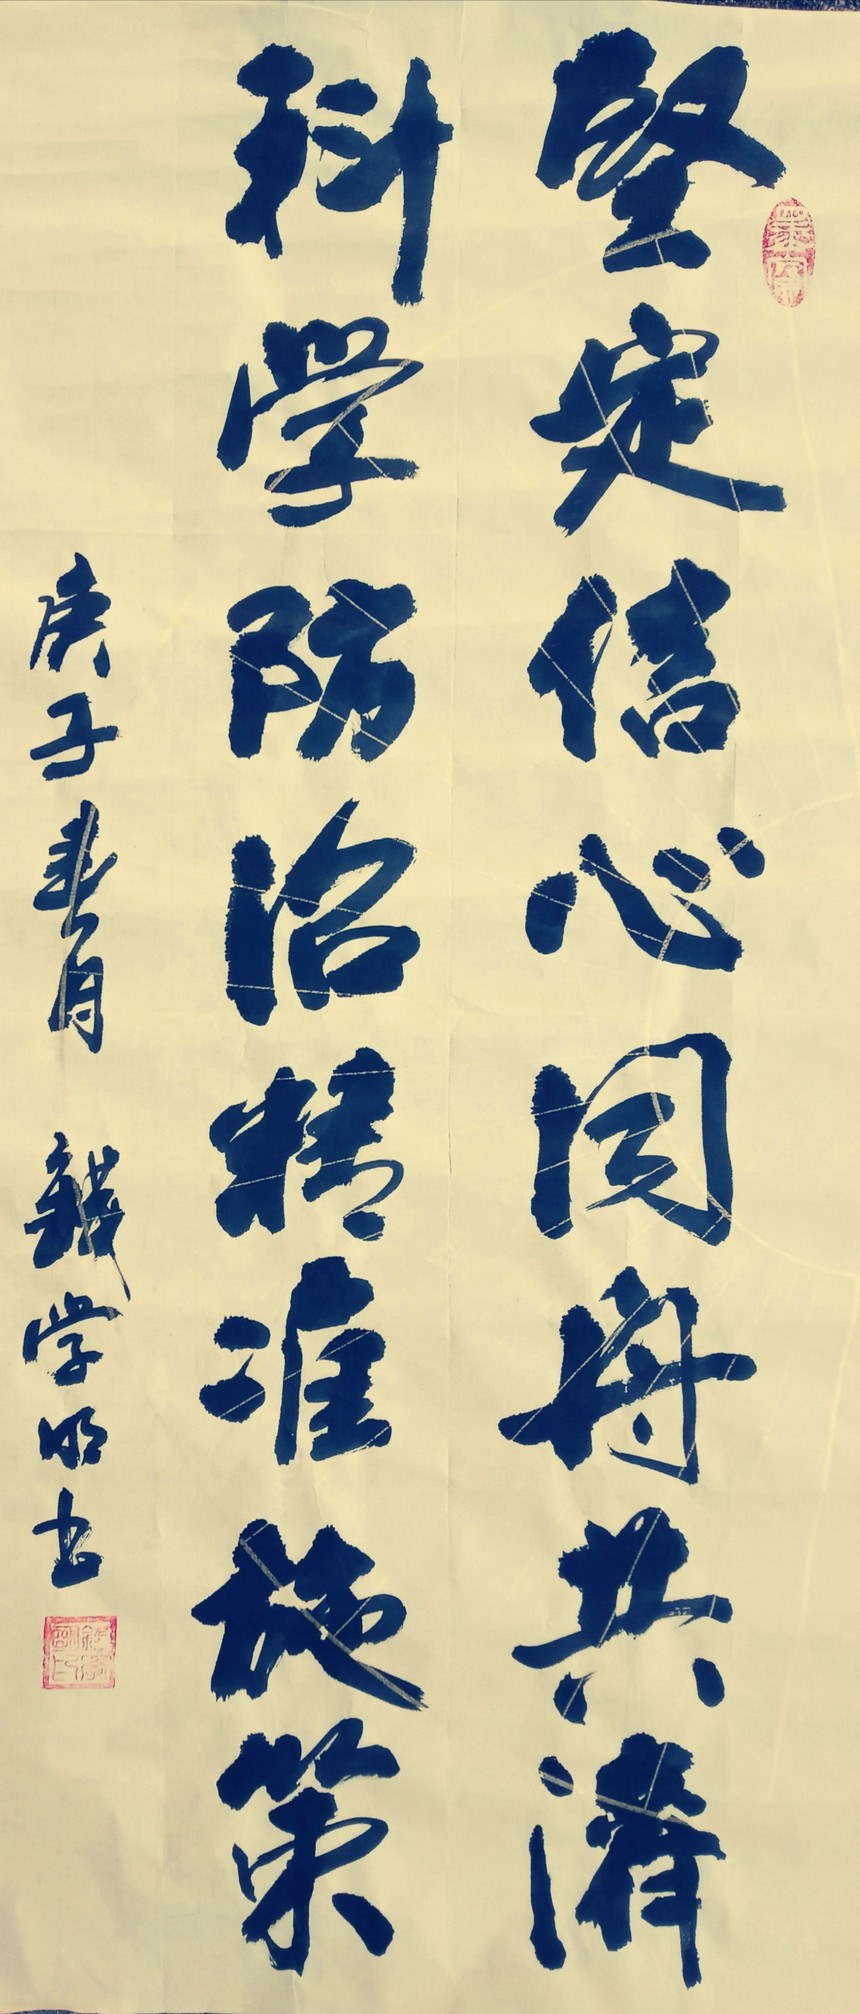 堅定信心同舟共濟
科学防治精准施策
庚子春月 錢学明书